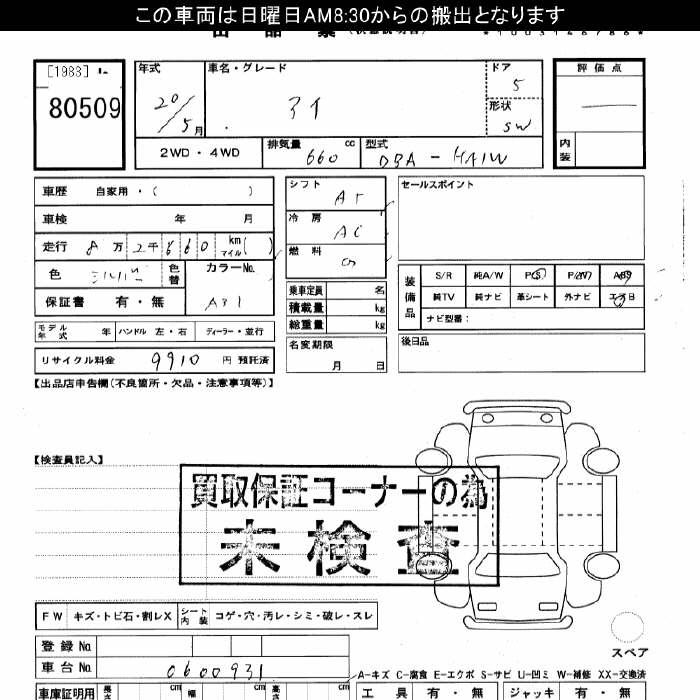 この車両は日曜日AM8:30からの搬出となります
[1983]
80509
年式
20/5月
車名・グレード
アイ
ドア
5
形状
SW
評価点
内装
2WD・4WD
排気量 660 cc
型式 DBA-HA1W
車歴 自家用・( )
車検 年 月
走行 8万2千660 km マイル( )
色 シルバー 色替
カラーNo. A31
保証書 有・無
モデル年式 年 ハンドル 左・右 ディーラー・並行
リサイクル料金 9910 円 預託済
シフト AT
冷房 AC
燃料
乗車定員 名
積載量 kg
総重量 kg
名変期限
月 日
セールスポイント
装備品
S/R 純A/W P/S P/W ABS
純TV 純ナビ 革シート 外ナビ エアB
ナビ型番:
後日品
【出品店申告欄(不良箇所・欠品・注意事項等)】
【検査員記入】
買取保証コーナーの為
未検査
FW キズ・トビ石・割レX シート内装 コゲ・穴・汚レ・シミ・破レ・スレ
スペア
登録No.
車台No. 0600931
A-キズ C-腐食 E-エクボ S-サビ U-凹ミ W-補修 XX-交換済
車庫証明用 長さ cm 幅 cm 高さ cm
工具 有・無 ジャッキ 有・無